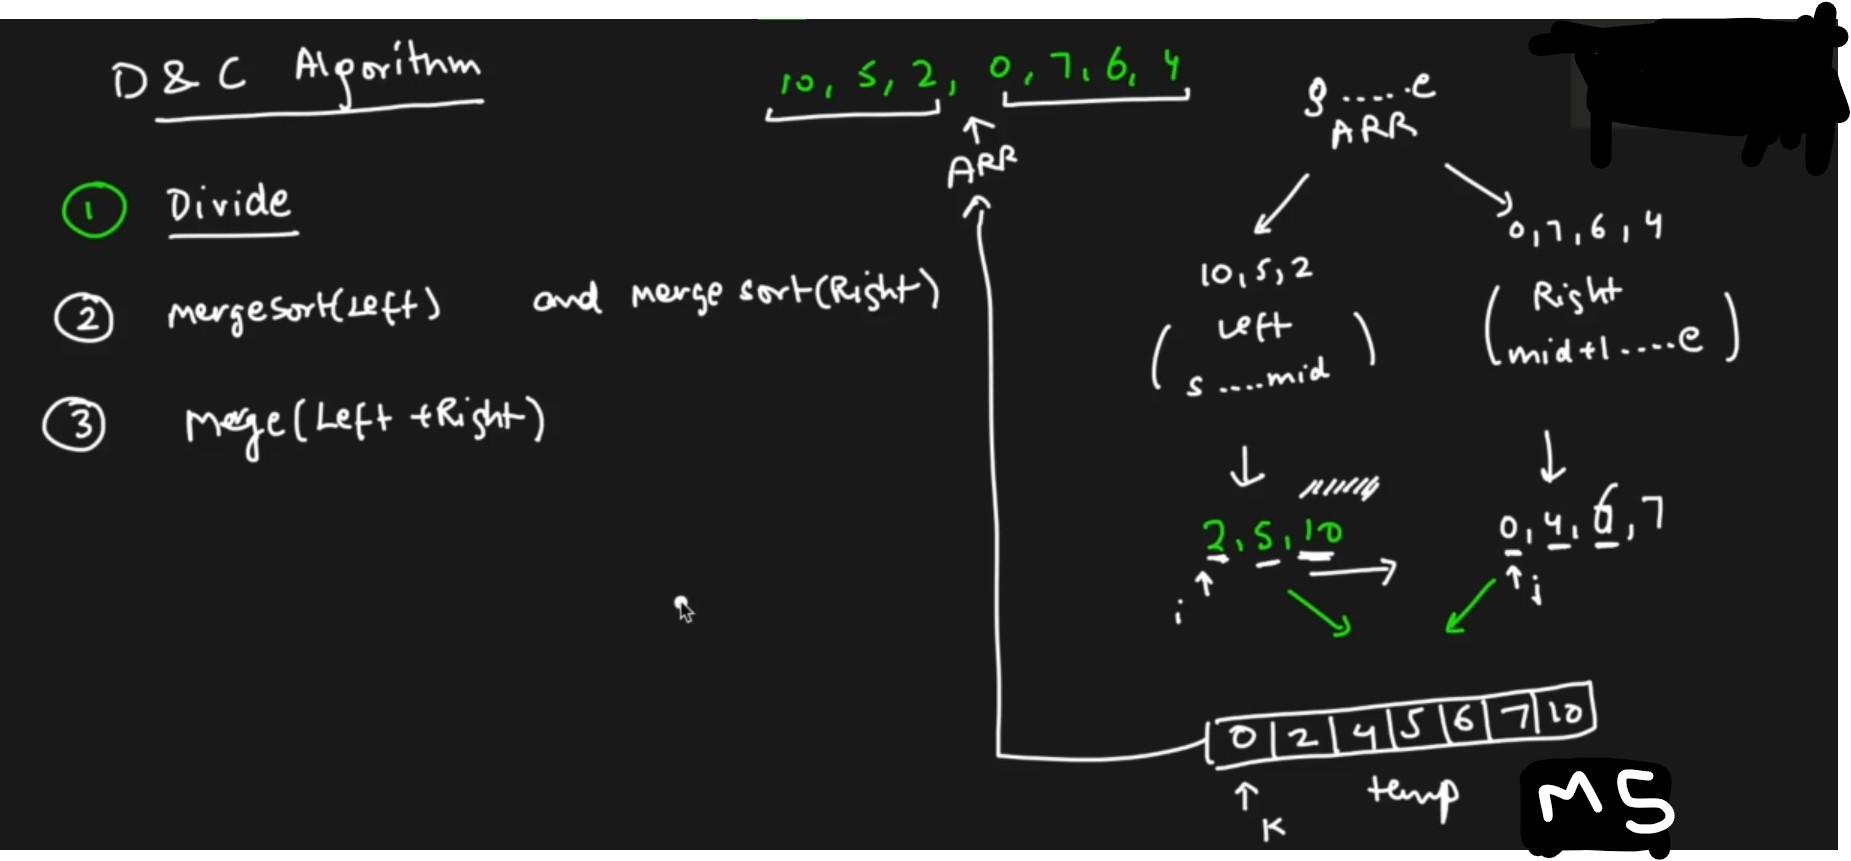 D & C Algorithm
10, 5, 2, 0, 7, 6, 4
ARR
1 Divide
2 mergesort(Left) and merge sort(Right)
3 Merge(Left +Right)
s.....e
ARR
10, 5, 2
Left
( s ....mid )
0, 7, 6, 4
( Right
mid+1.....e )
2, 5, 10
i
0, 4, 6, 7
j
0 | 2 | 4 | 5 | 6 | 7 | 10
K
temp
MS